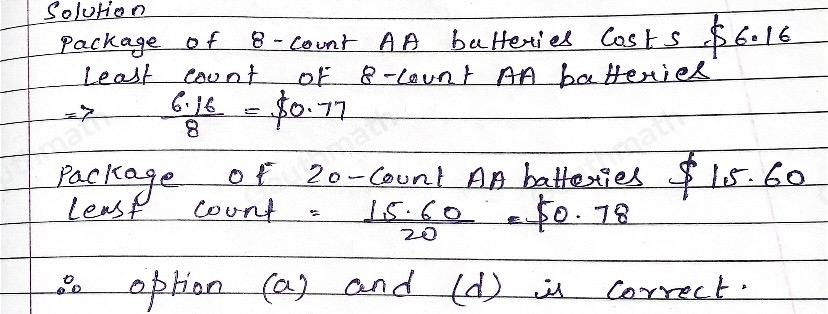 Solution
Package of 8-count AA batteries Costs $6.16
Least count of 8-count AA batteries
=> 6.16/8 = $0.77
Package of 20-count AA batteries $15.60
Least count = 15.60/20 = $0.78
∴ option (a) and (d) is correct.